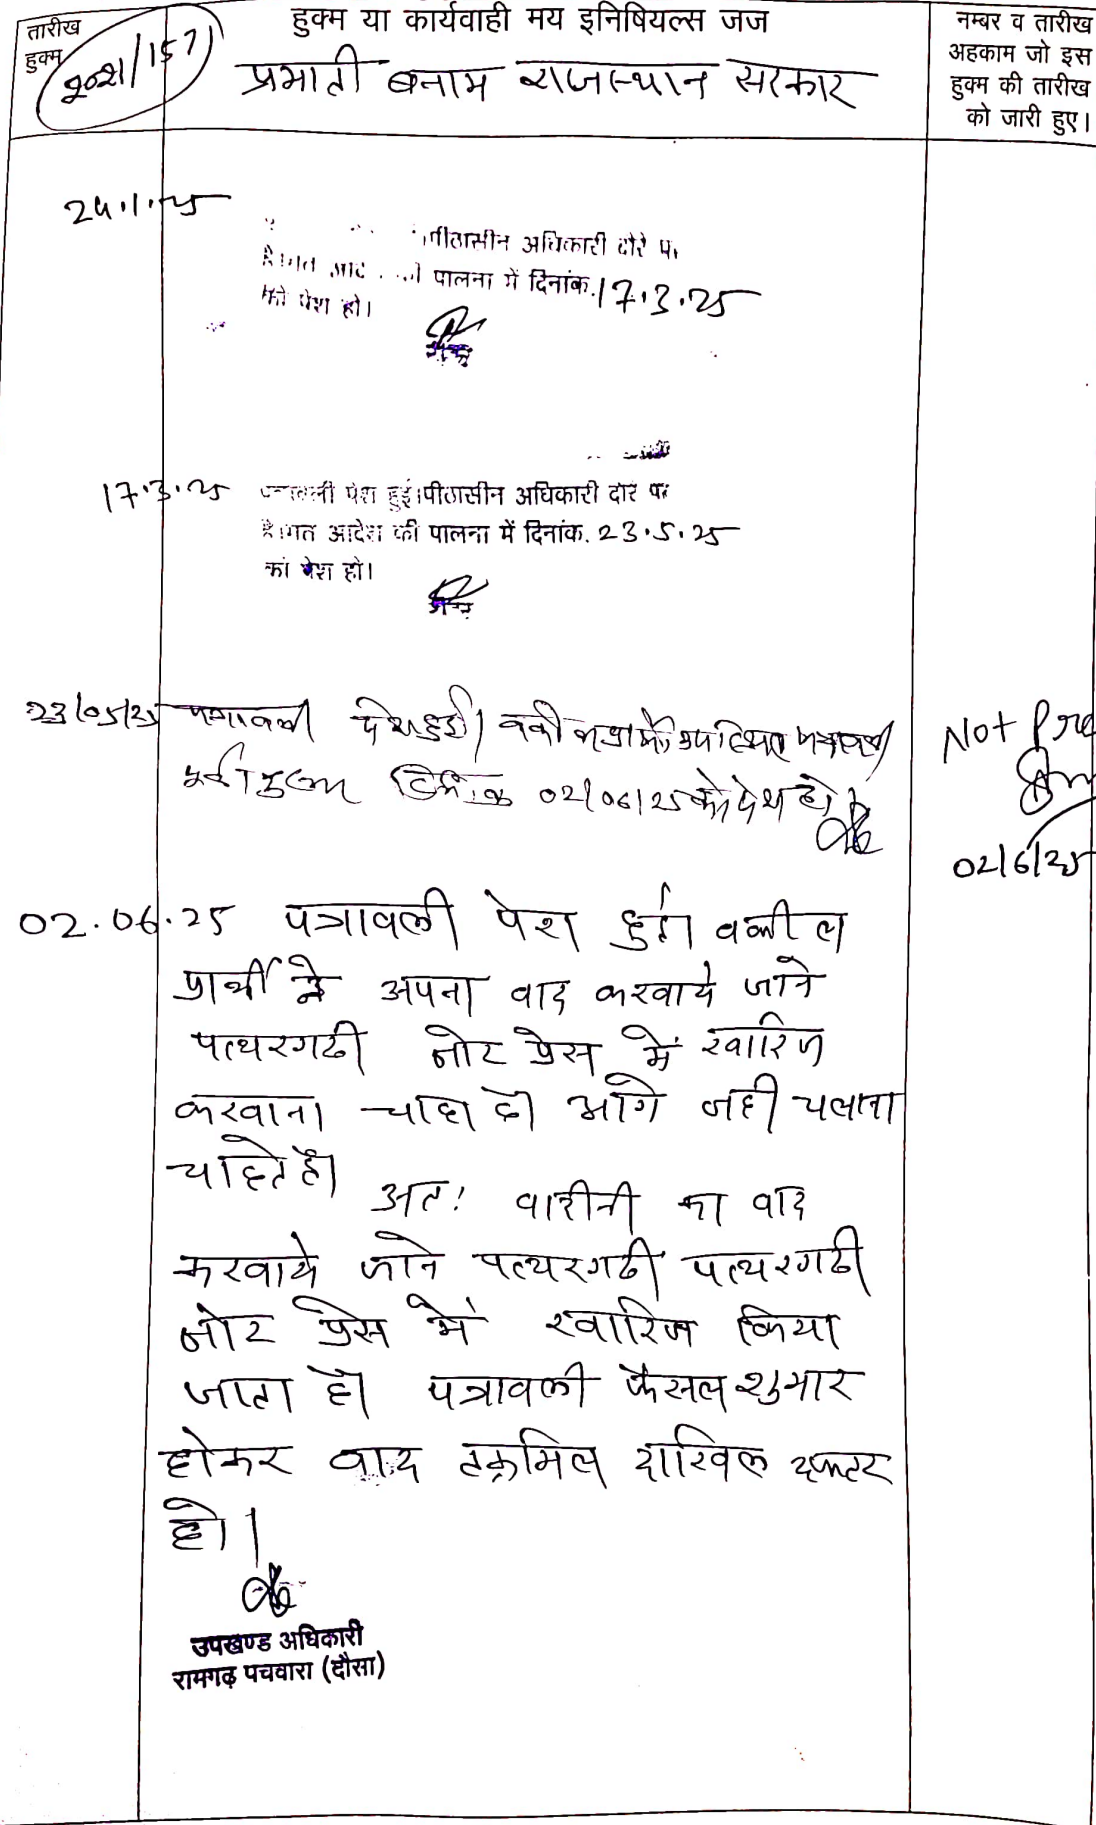 तारीख
हुक्म
हुक्म या कार्यवाही मय इनिषियल्स जज
नम्बर व तारीख
अहकाम जो इस
हुक्म की तारीख
को जारी हुए।
2021/157
प्रभाती बनाम राजस्थान सरकार
24.1.25
पीठासीन अधिकारी दौरे पर
है।गत पालना में दिनांक.17.3.25
को पेश हो।
17.3.25 पत्रावली पेश हुई।पीठासीन अधिकारी दौरे पर
है।गत आदेश की पालना में दिनांक. 23.5.25
को पेश हो।
23/05/25 पत्रावली पेश हुई।
दिनांक 02/06/25 को पेश हो।
Not Pre
02/6/25
02.06.25 पत्रावली पेश हुई। वकील
प्रार्थी ने अपना वाद करवाये जाने
पत्थरगढी नोट प्रेस में खारिज
करवाना चाहा है। आगे नही चलाना
चाहते है।
अत: वादीनी का वाद
करवाये जाने पत्थरगढी पत्थरगढी
नोट प्रेस में खारिज किया
जाता है। पत्रावली फैसल शुमार
होकर वाद तकमिल दाखिल दफ्तर
हो।
उपखण्ड अधिकारी
रामगढ़ पचवारा (दौसा)